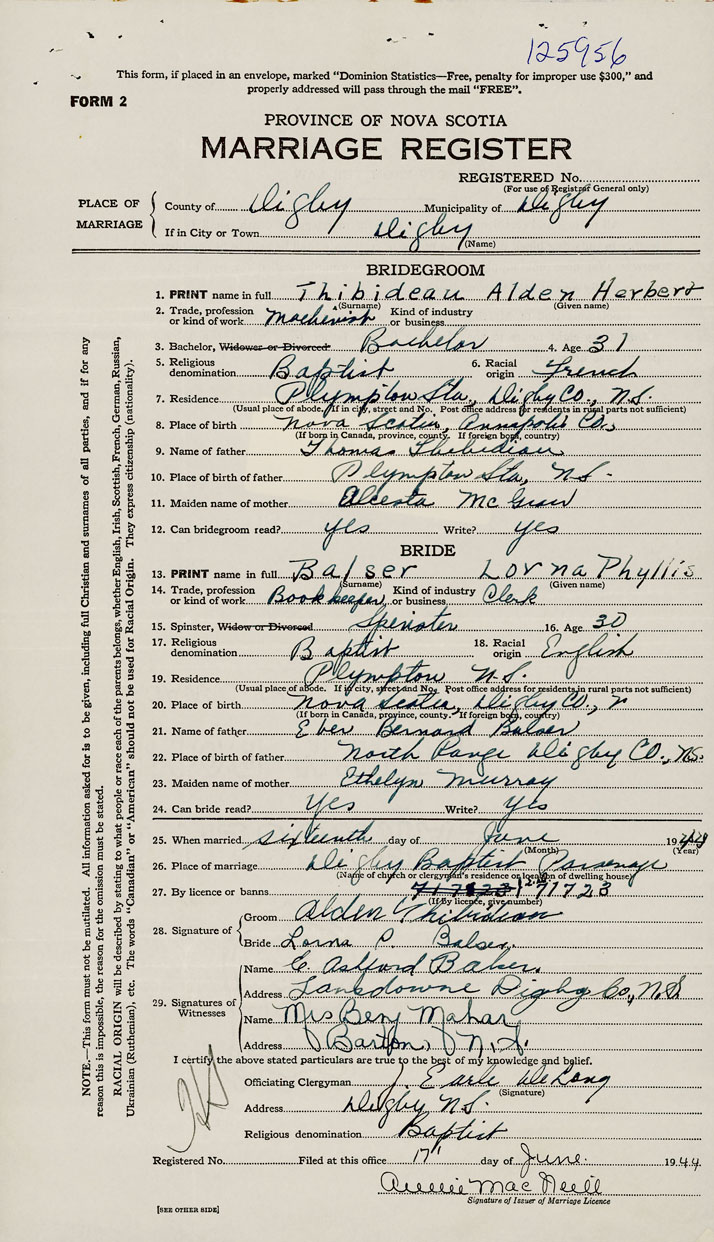 125956
This form, if placed in an envelope, marked “Dominion Statistics—Free, penalty for improper use $300,” and
properly addressed will pass through the mail “FREE”.
FORM 2
PROVINCE OF NOVA SCOTIA
MARRIAGE REGISTER
REGISTERED No.
(For use of Registrar General only)
PLACE OF MARRIAGE
County of Digby Municipality of Digby
If in City or Town Digby
(Name)
BRIDEGROOM
1. PRINT name in full Thibideau Alden Herbert
(Surname) (Given name)
2. Trade, profession or kind of work Machinist Kind of industry or business
3. Bachelor, Widower or Divorced Bachelor 4. Age 31
5. Religious denomination Baptist 6. Racial origin French
7. Residence Plympton Sta., Digby Co., N.S.
(Usual place of abode. If in city, street and No. Post office address for residents in rural parts not sufficient)
8. Place of birth Nova Scotia, Annapolis Co.,
(If born in Canada, province, county. If foreign born, country)
9. Name of father Thomas Thibideau
10. Place of birth of father Plympton Sta, N.S.
11. Maiden name of mother Mc
12. Can bridegroom read? yes Write? yes
BRIDE
13. PRINT name in full Balser Lorna Phyllis
(Surname) (Given name)
14. Trade, profession or kind of work Bookkeeper Kind of industry or business Clerk
15. Spinster, Widow or Divorced Spinster 16. Age 30
17. Religious denomination Baptist 18. Racial origin English
19. Residence Plympton N.S.
(Usual place of abode. If in city, street and No. Post office address for residents in rural parts not sufficient)
20. Place of birth Nova Scotia, Digby Co.,
(If born in Canada, province, county. If foreign born, country)
21. Name of father Eber Bernard Balser
22. Place of birth of father North Range Digby Co., N.S.
23. Maiden name of mother Ethelyn Murray
24. Can bride read? Yes Write? Yes
25. When married sixteenth day of June 19
(Month) (Year)
26. Place of marriage Digby Baptist Parsonage
(Name of church or clergyman's residence or location of dwelling house)
27. By licence or banns 71723
(If by licence, give number)
28. Signature of
Groom Alden Thibideau
Bride Lorna P. Balser.
29. Signatures of Witnesses
Name E. Baker.
Address Lansdowne Digby Co., N.S.
Name Mrs Benj Mahar
Address Barton, N.S.
I certify the above stated particulars are true to the best of my knowledge and belief.
Officiating Clergyman J. Earle DeLong
(Signature)
Address Digby N.S.
Religious denomination Baptist
Registered No. Filed at this office 17 day of June. 1944
Annie MacNeill
Signature of Issuer of Marriage Licence
[SEE OTHER SIDE]
NOTE.—This form must not be mutilated. All information asked for is to be given, including full Christian and surnames of all parties, and if for any
reason this is impossible, the reason for the omission must be stated.
RACIAL ORIGIN will be described by stating to what people or race each of the parents belongs, whether English, Irish, Scottish, French, German, Russian,
Ukrainian (Ruthenian), etc. The words “Canadian” or “American” should not be used for Racial Origin. They express citizenship (nationality).